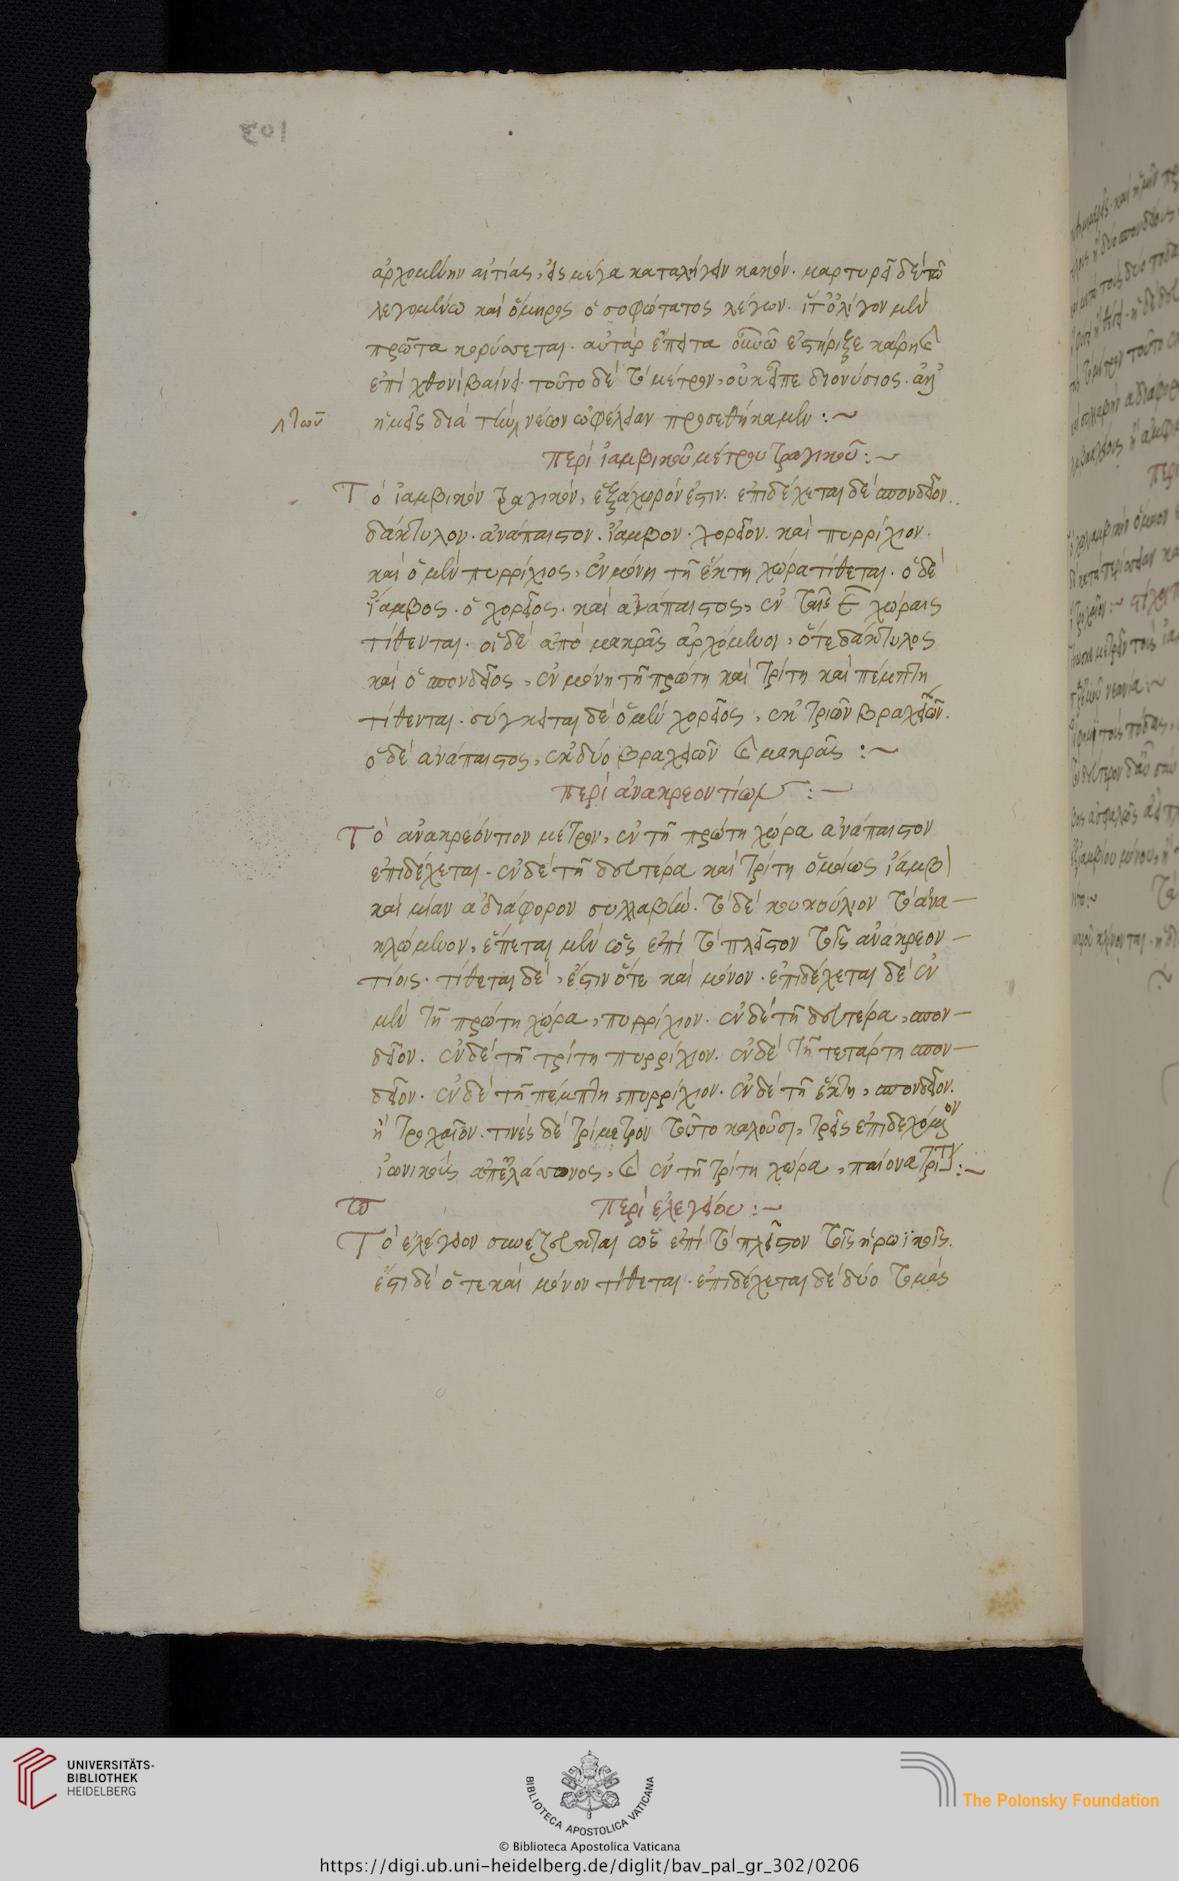 103
ἀρχομένην αἰτίας, εἰς μέγα καταλήγειν κακόν. μαρτυρεῖ δὲ τῶ
λεγομένω καὶ ὅμηρος ὁ σοφώτατος λέγων. ἥτ' ὀλίγον μὲν
πρῶτα κορύσσεται. αὐτὰρ ἔπειτα οὐρανῶ ἐστήριξε κάρη καὶ
ἐπὶ χθονὶ βαίνει. τοῦτο δὲ τὸ μέτρον, οὐκ εἶπε διονύσιος. ἀλλ'
ἡμεῖς διὰ τὴν νέων ὠφέλειαν προσεθήκαμεν :~
περὶ ἰαμβικοῦ μέτρου τραγικοῦ :~
Τὸ ἰαμβικὸν τραγικὸν, ἑξάχωρόν ἐστιν. ἐπιδέχεται δὲ σπονδεῖον.
δάκτυλον. ἀνάπαιστον. ἴαμβον. χορεῖον. καὶ πυρρίχιον.
καὶ ὁ μὲν πυρρίχιος, ἐν μόνη τῆ ἕκτη χώρα τίθεται. ὁ δὲ
ἴαμβος. ὁ χορεῖος. καὶ ἀνάπαιστος, ἐν ταῖς ε χώραις
τίθενται. οἱ δὲ ἀπὸ μακρᾶς ἀρχόμενοι, ὅ τε δάκτυλος
καὶ ὁ σπονδεῖος, ἐν μόνη τῆ πρώτη καὶ τρίτη καὶ πέμπτη
τίθενται. σύγκειται δὲ ὁ μὲν χορεῖος, ἐκ τριῶν βραχειῶν.
ὁ δὲ ἀνάπαιστος, ἐκ δύο βραχειῶν καὶ μακρᾶς :~
περὶ ἀνακρεοντίων :~
Τὸ ἀνακρεόντιον μέτρον, ἐν τῆ πρώτη χώρα ἀνάπαιστον
ἐπιδέχεται. ἐν δὲ τῆ δευτέρα καὶ τρίτη ὁμοίως ἰάμβ
καὶ μίαν ἀδιάφορον συλλαβήν. τὸ δὲ κουκούλιον τὸ ἀνα-
κλώμενον, ἕπεται μὲν ὡς ἐπὶ τὸ πλεῖστον τοῖς ἀνακρεον-
τίοις. τίθεται δὲ, ἔστιν ὅτε καὶ μόνον. ἐπιδέχεται δὲ ἐν
μὲν τῆ πρώτη χώρα, πυρρίχιον. ἐν δὲ τῆ δευτέρα, σπον-
δεῖον. ἐν δὲ τῆ τρίτη πυρρίχιον. ἐν δὲ τῆ τετάρτη σπον-
δεῖον. ἐν δὲ τῆ πέμπτη, πυρρίχιον. ἐν δὲ τῆ ἕκτη, σπονδεῖον.
ἢ τροχαῖον. τινὲς δὲ τρίμετρον τοῦτο καλοῦσι, τρεῖς ἐπιδεχόμενον
ἰωνικοὺς ἀπ' ἐλάσσονος, καὶ ἐν τῆ τρίτη χώρα, παίονα τρίτον :~
περὶ ἐλεγείου :~
Τὸ ἐλεγεῖον συνέζευκται ὡς ἐπὶ τὸ πλεῖστον τοῖς ἡρωϊκοῖς.
ἔστι δὲ ὅτε καὶ μόνον τίθεται. ἐπιδέχεται δὲ δύο τομὰς
UNIVERSITÄTS-
BIBLIOTHEK
HEIDELBERG
BIBLIOTECA APOSTOLICA VATICANA
The Polonsky Foundation
© Biblioteca Apostolica Vaticana
https://digi.ub.uni-heidelberg.de/diglit/bav_pal_gr_302/0206